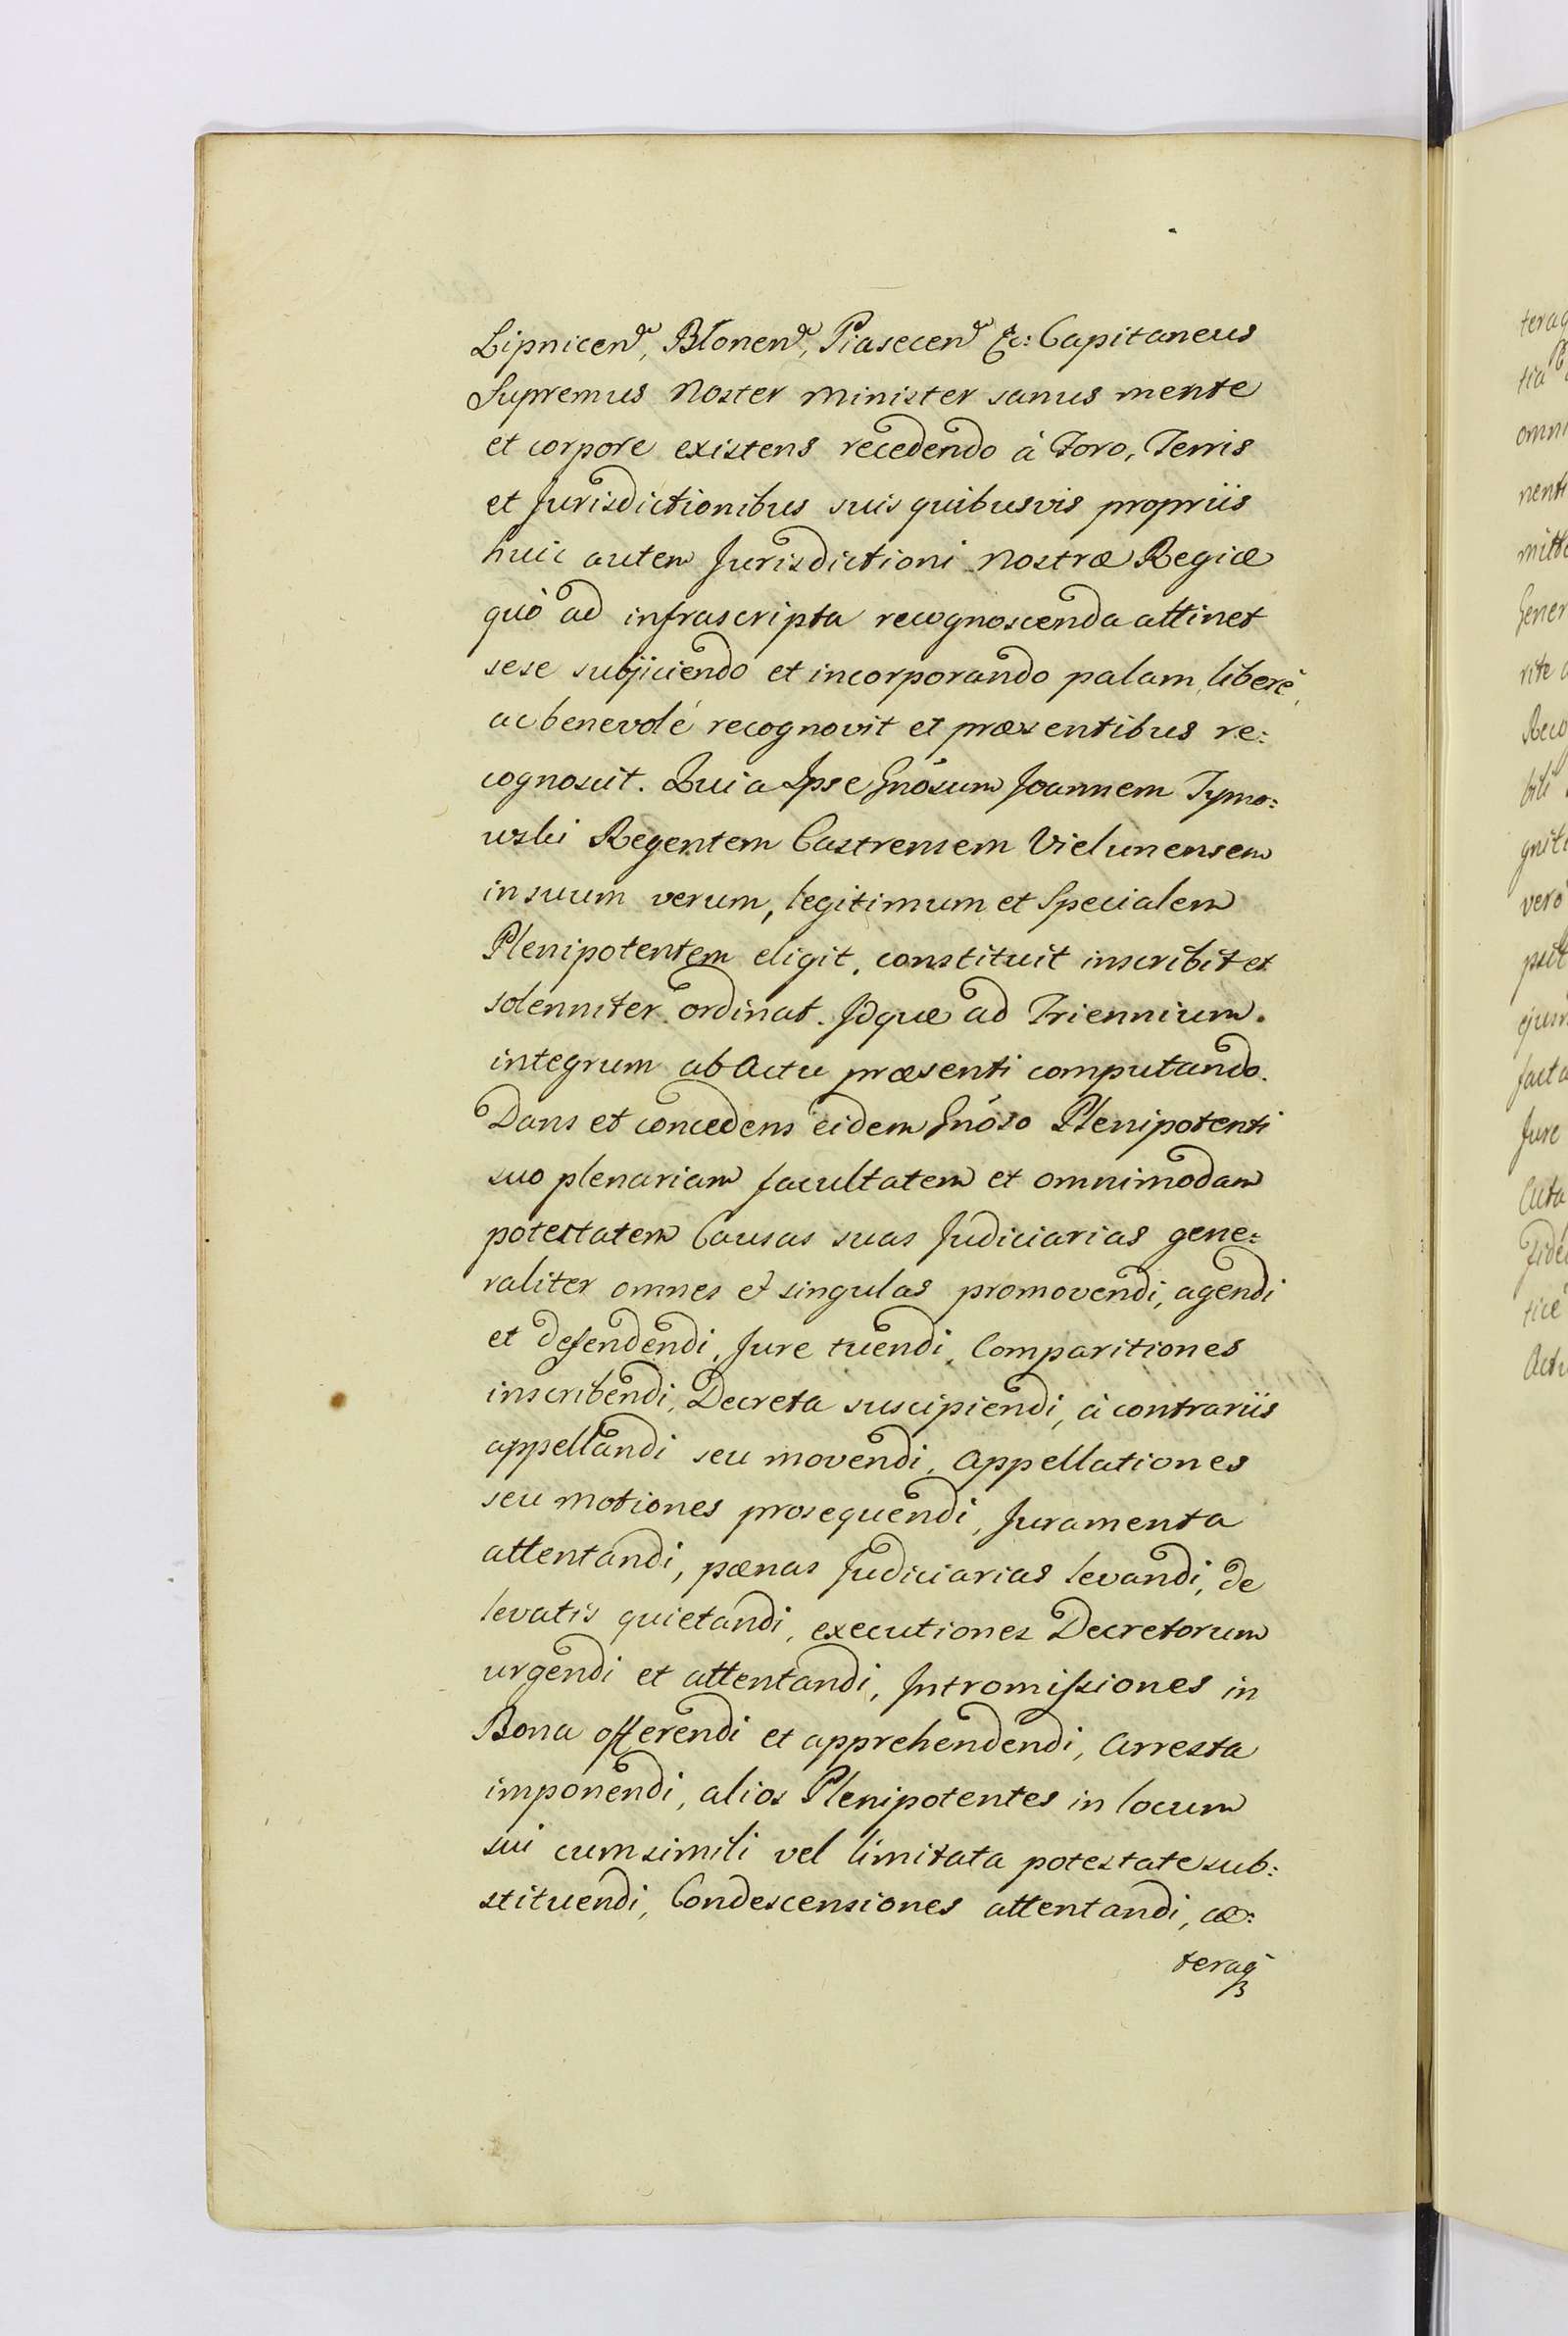 Lipnicen, Blonen, Piasecen &c: Capitaneus
Supremus Noster Minister sanus mente
et corpore existens recedendo à Foro, Terris
et Jurisdictionibus suis quibusvis propriis
huic autem Jurisdictioni Nostræ Regiæ
quò ad infrascripta recognoscenda attinet
sese subjiciendo et incorporando palam, liberè,
ac benevolé recognovit et præsentibus re:
cognoscit. Quia Ipse Gnosum Joannem Tymo:
wski Regentem Castrensem Vielunensem
in suum verum, legitimum et Specialem
Plenipotentem eligit, constituit inscribit et
solenniter ordinat. Idque ad Triennium.
integrum ab Actu præsenti computando.
Dans et concedens eidem Gnoso Plenipotenti
suo plenariam facultatem et omnimodam
potestatem Causas suas Judiciarias gene:
raliter omnes et singulas promovendi, agendi
et defendendi, Jure tuendi, Comparitiones
inscribendi, Decreta suscipiendi, à contrariis
appellandi seu movendi, Appellationes
seu motiones prosequendi, Juramenta
attentandi, pænas Judiciarias levandi, de
levatis quietandi, executiones Decretorum
urgendi et attentandi, Intromissiones in
Bona offerendi et apprehendendi, Arresta
imponendi, alios Plenipotentes in locum
sui cum simili vel limitata potestate sub:
stituendi, Condescensiones attentandi, cæ:
teraq